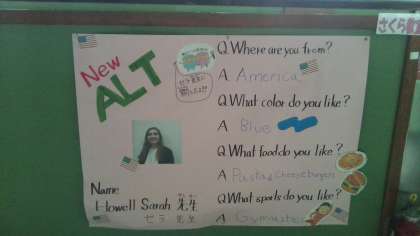 さくら
New
ALT
Q. Where are you from?
A America
Q. What color do you like?
A Blue
Q. What food do you like?
A Pasta & Cheeseburger
Q. What sports do you like?
A Gymnastics
Name
Howell Sarah 先生
セラ 先生